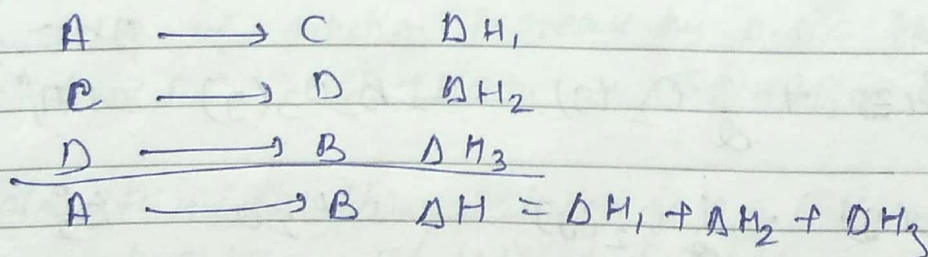 A → C ΔH₁
C → D ΔH₂
D → B ΔH₃
A → B ΔH = ΔH₁ + ΔH₂ + ΔH₃